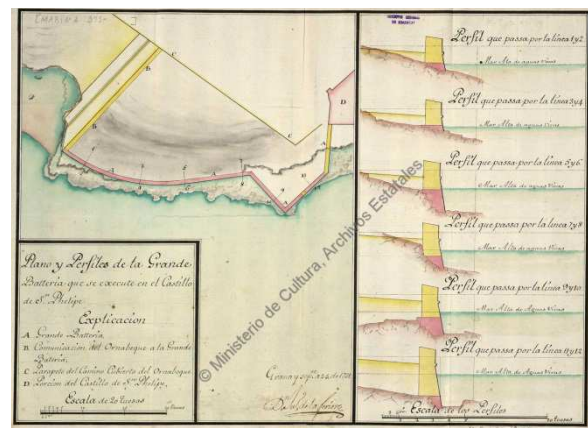 Plano y Perfiles de la Grande
Batteria que se execute en el Castillo
de Sn. Phelipe
Explicacion
A Grande Batteria
B Comunicacion del Ornabeque a la Grande
Bateria
C Parapeto del Camino Cubierto del Ornabeque
D Porcion del Castillo de Sn. Phelipe
Escala de 20 tuesas
Perfil que passa por la linea 1 y 2
Mar Alta de aguas vivas
Perfil que passa por la linea 3 y 4
Mar Alta de aguas vivas
Perfil que passa por la linea 5 y 6
Mar Alta de aguas vivas
Perfil que passa por la linea 7 y 8
Mar Alta de aguas vivas
Perfil que passa por la linea 9 y 10
Mar Alta de Aguas vivas
Perfil que passa por la linea 11 y 12
Mar Alta de Aguas vivas
Escala de los Perfiles
© Ministerio de Cultura, Archivos Estatales